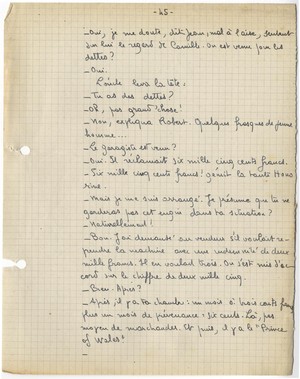 - 45 -
_ Oui, je me doute, dit Jean, mal à l'aise, sentant
sur lui le regard de Camille. On est venu pour les
dettes ?
_ Oui.
Cécile leva la tête :
_ Tu as des dettes ?
_ Oh, pas grand'chose !
_ Non, expliqua Robert. Quelques frasques de jeune
homme...
_ Le garagiste est venu ?
_ Oui. Il réclamait six mille cinq cents francs.
_ Six mille cinq cents francs ! gémit la tante Hono
rine.
_ Mais je me suis arrangé. Je présume que tu ne
garderas pas cet engin dans ta situation ?
_ Naturellement !
_ Bon. J'ai demandé au vendeur s'il voulait re-
prendre la machine avec une indemnité de deux
mille francs. Il en voulait trois. On s'est mis d'ac
cord sur le chiffre de deux mille cinq.
_ Bien. Après ?
_ Après, il y a ta chambre : un mois à trois cents francs
plus un mois de prévenance : six cents. Là, pas
moyen de marchander. Et puis, il y a le "Prince
of Wales"
_